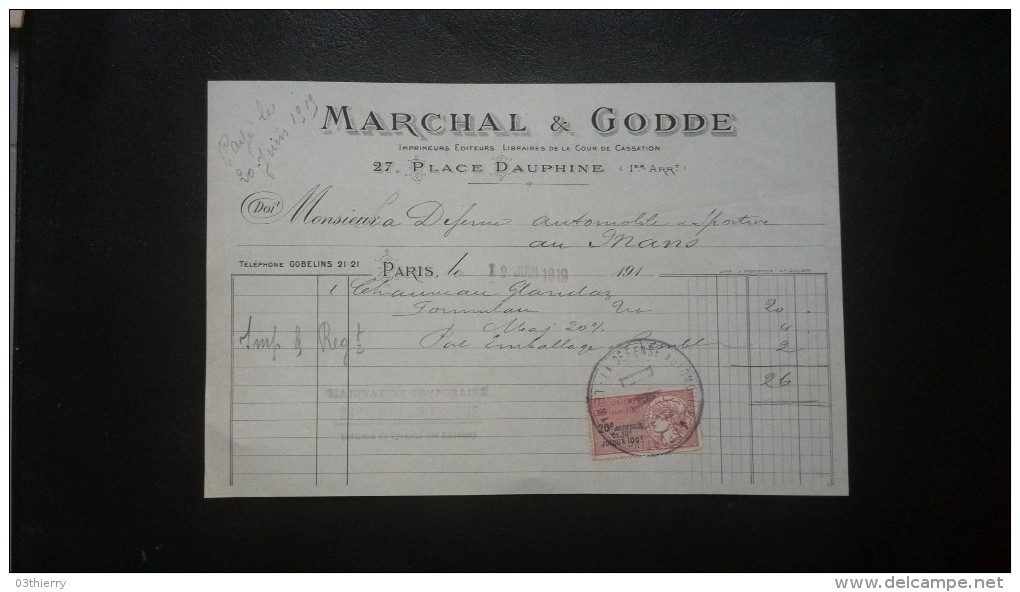 Payé le
20 Juin 1919
MARCHAL & GODDE
IMPRIMEURS EDITEURS LIBRAIRES DE LA COUR DE CASSATION
27, PLACE DAUPHINE (1ER ARRT)
Doit Monsieur La Defense Automobile & Sportive
au Mans
TÉLÉPHONE GOBELINS 21 21
PARIS, le 19 JUIN 1919 191
1 Chauveau Glandaz
Formulaire 20 .
Maj 20% 4
Imp & Reg Port Emballage 2
26
MAJORATION TEMPORAIRE
LA DÉFENSE AUTOMOBILE
20c
AU DESSUS
DE 10F
JUSQU'A 100F
03thierry
www.delcampe.net